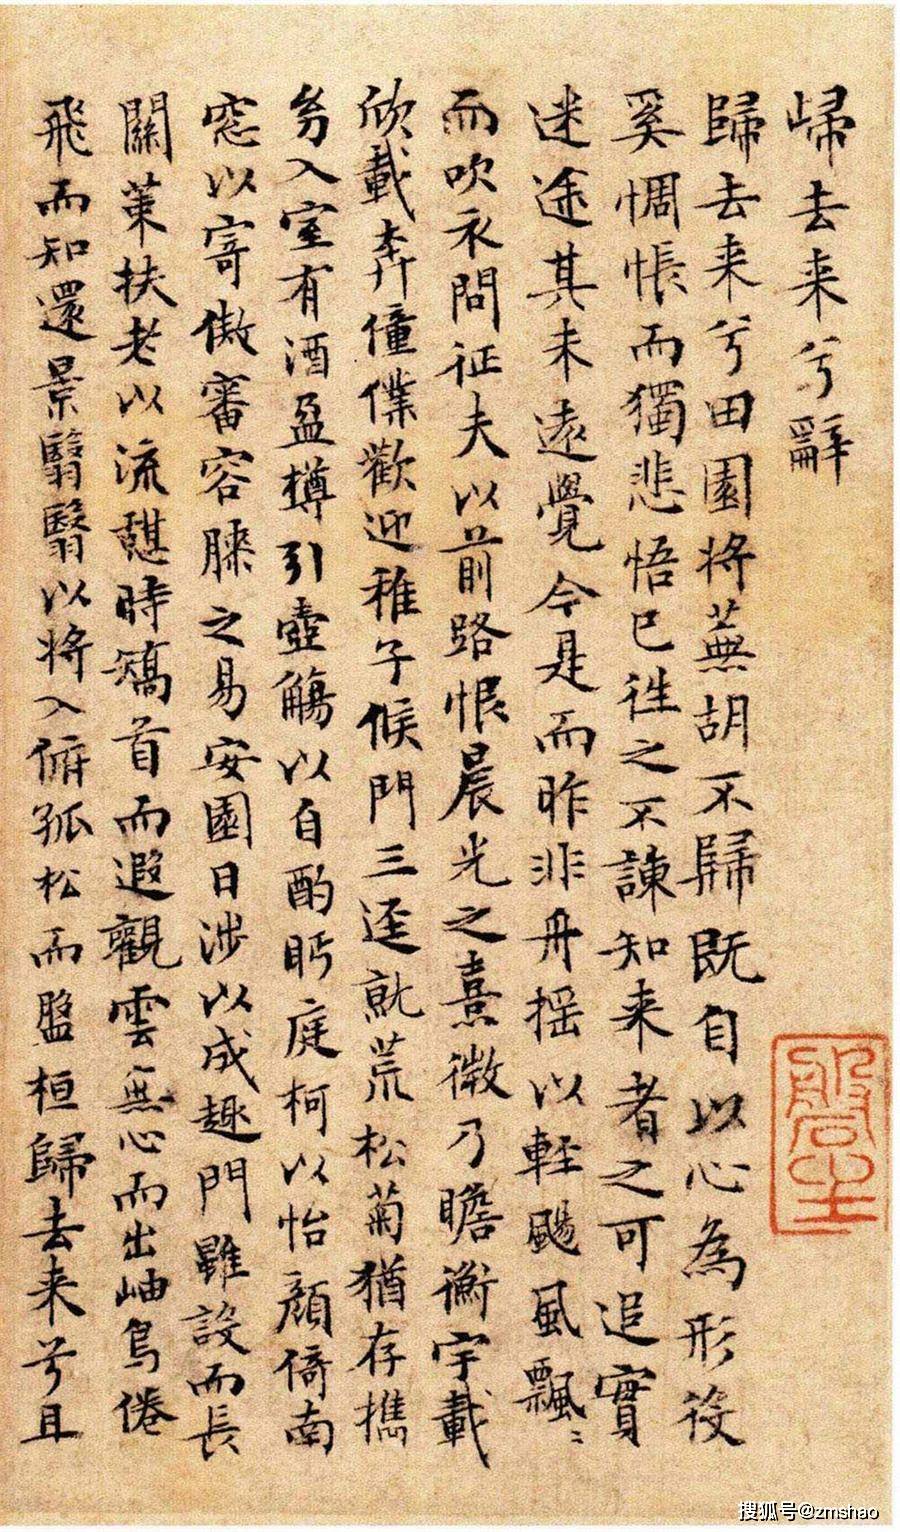 歸去来兮辭
歸去来兮田園将蕪胡不歸既自以心為形役
奚惆悵而獨悲悟已往之不諫知来者之可追實
迷途其未遠覺今是而昨非舟摇以輕颺風飄〻
而吹衣問征夫以前路恨晨光之熹微乃瞻衡宇載
欣載奔僮僕歡迎稚子候門三逕就荒松菊猶存攜
幼入室有酒盈樽引壺觴以自酌眄庭柯以怡顔倚南
窓以寄傲審容膝之易安園日涉以成趣門雖設而長
關策扶老以流憩時矯首而遐觀雲無心而出岫鳥倦
飛而知還景翳翳以将入俯孤松而盤桓歸去来兮且
搜狐号@zmshao